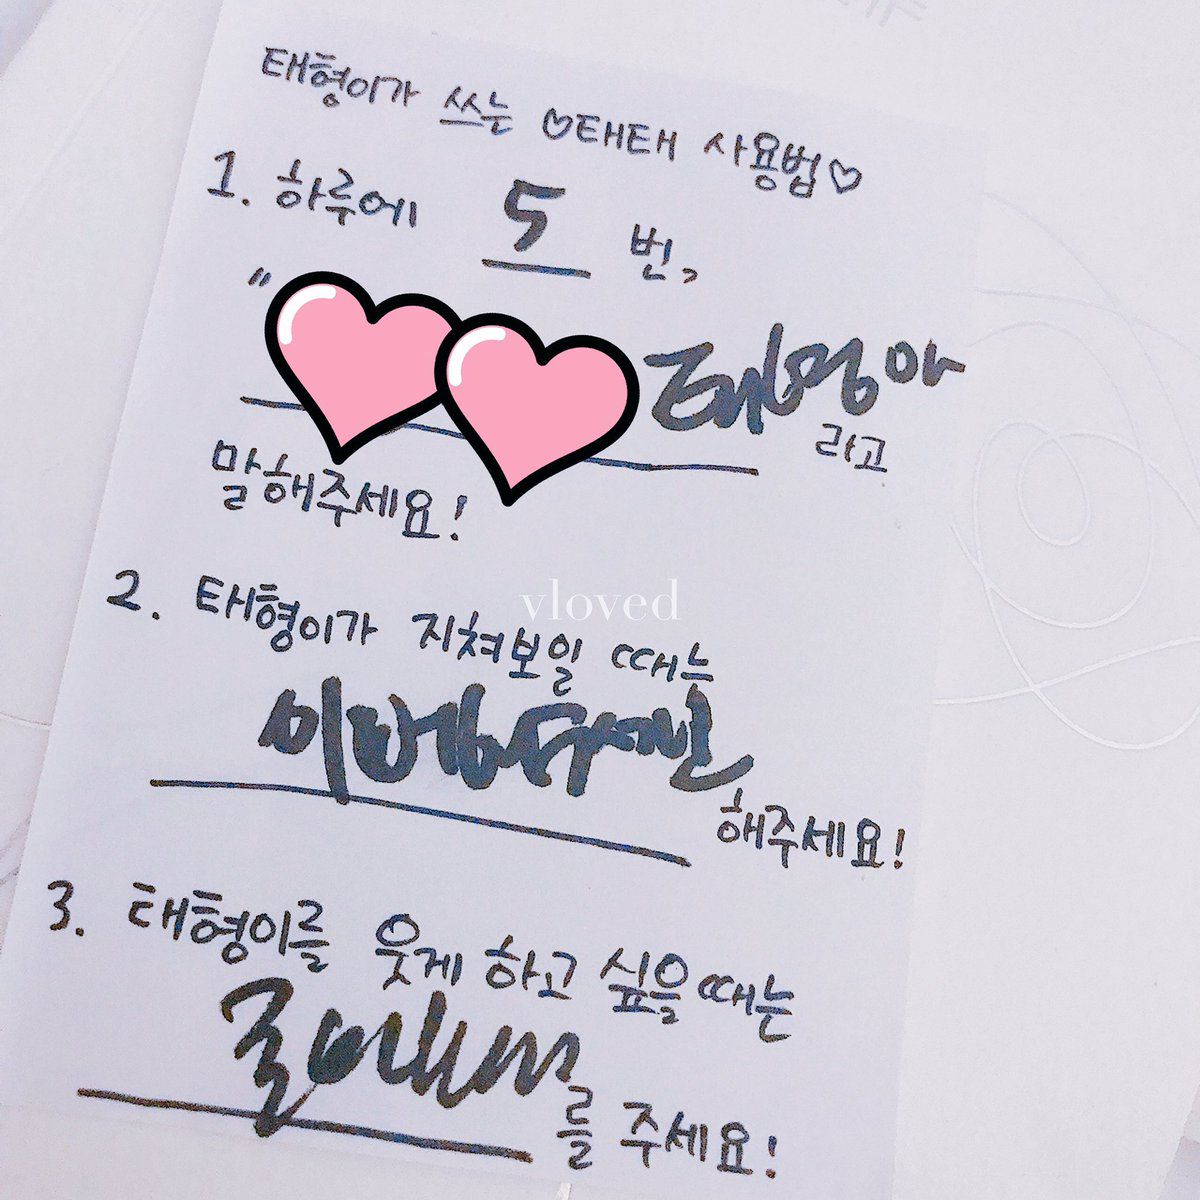 태형이가 쓰는 ♡태태 사용법♡
1. 하루에 5 번,
" 태형아
라고
말해주세요!
vloved
2. 태형이가 지쳐보일 때는
해주세요!
3. 태형이를 웃게 하고 싶을 때는
를 주세요!